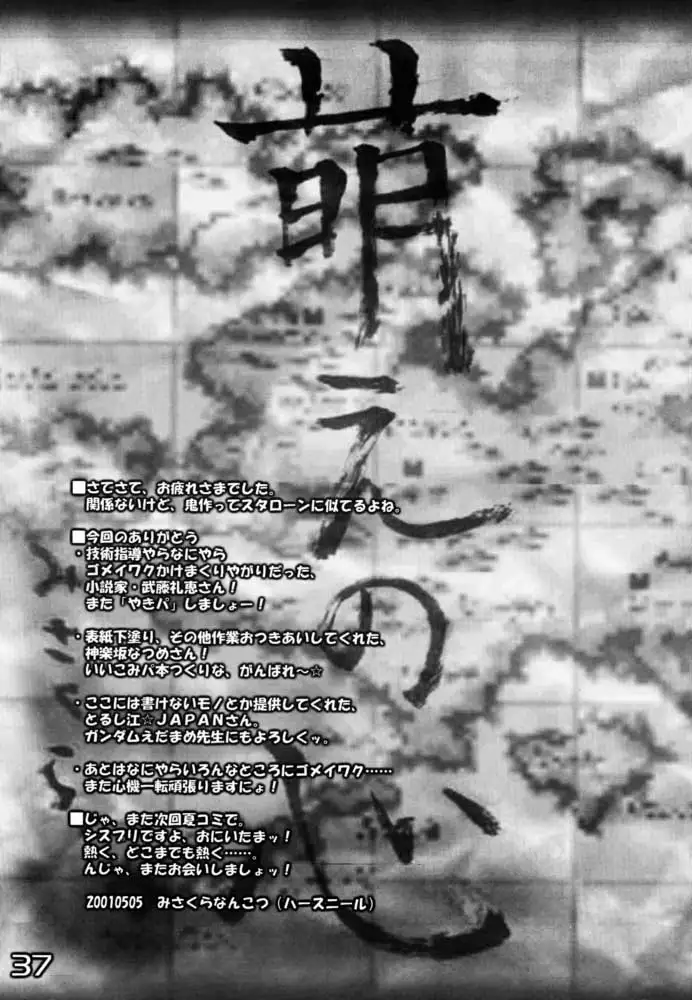 萌えの心
■さてさて、お疲れさまでした。
関係ないけど、鬼作ってスタローンに似てるよね。
■今回のありがとう
・技術指導やらなにやら
ゴメイワクかけまくりやがりだった、
小説家・武藤礼恵さん！
また「やきパ」しましょー！
・表紙下塗り、その他作業おつきあいしてくれた、
神楽坂なつめさん！
いいこみパ本つくりな、がんばれ～☆
・ここには書けないモノとか提供してくれた、
とるし江☆ＪＡＰＡＮさん。
ガンダムえだまめ先生にもよろしくッ。
・あとはなにやらいろんなところにゴメイワク……
また心機一転頑張りますにょ！
■じゃ、また次回夏コミで。
シスプリですよ、おにいたまッ！
熱く、どこまでも熱く……。
んじゃ、またお会いしましょッ！
20010505 みさくらなんこつ（ハースニール）
37